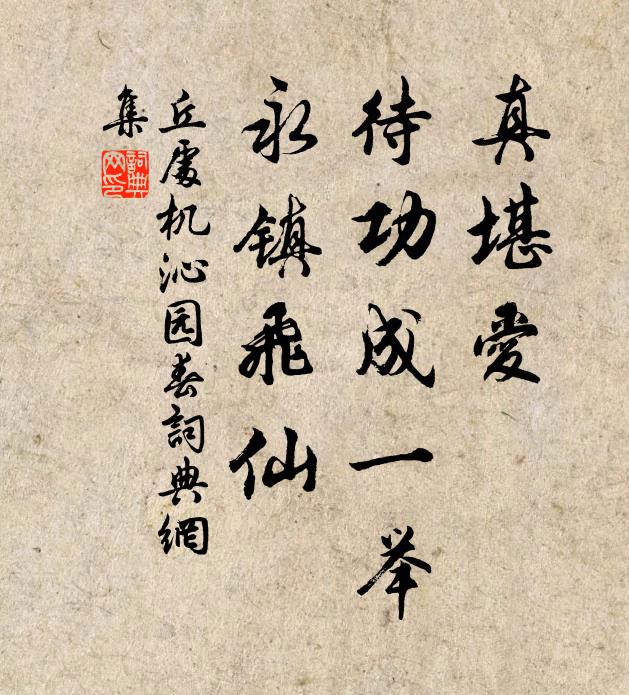 真堪愛
待功成一举
永镇飛仙
丘處机沁园春詞典網
集
詞典
网印